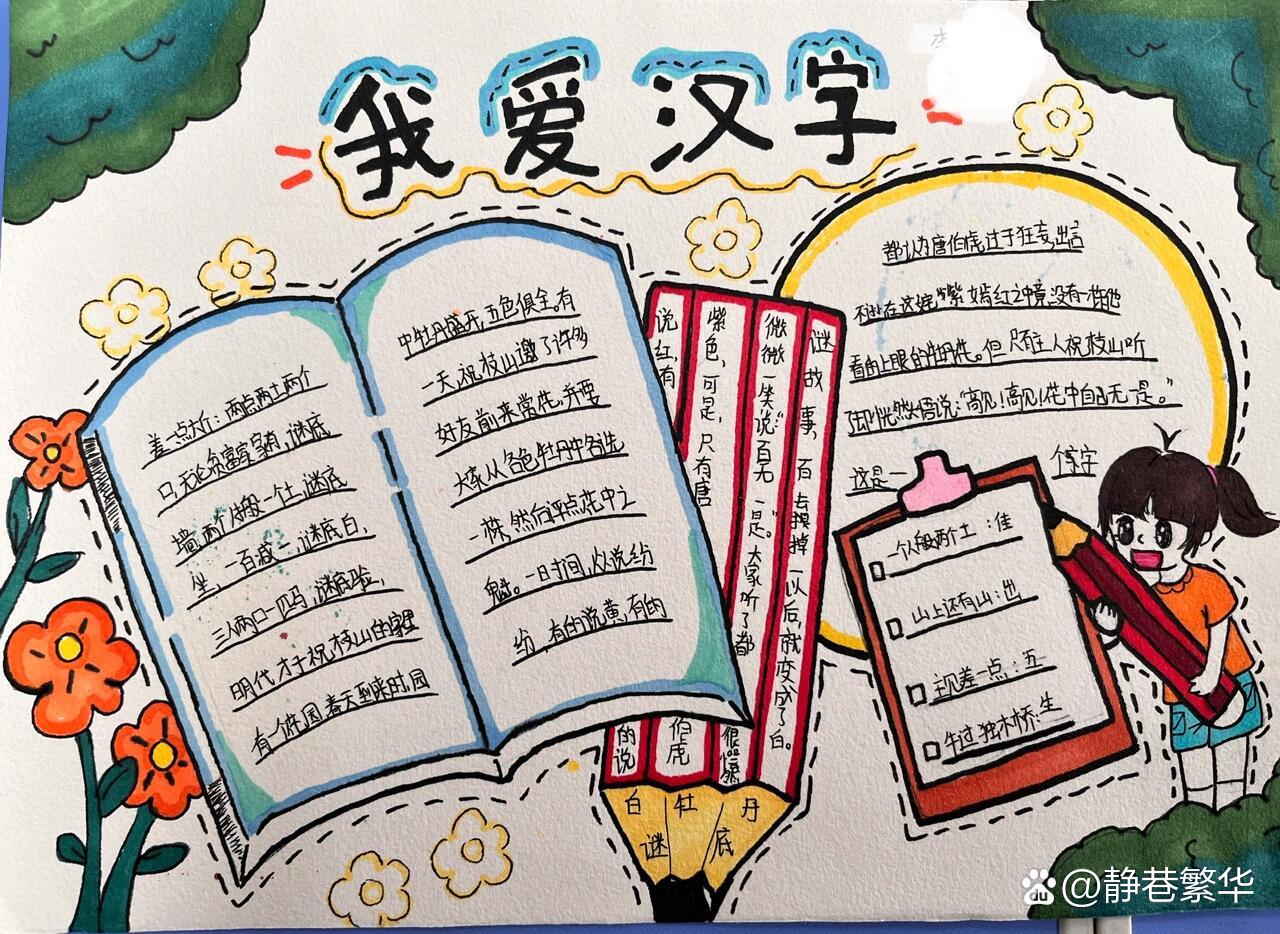 我爱汉字
差一点六斤：两点两土两个
口，无论贫富家家有，谜底
墙，两个人搬一土，谜底
坐，一百减一，谜底白，
三人两口一匹马，谜底验，
明代才子祝枝山的家里
有一个花园春天到来时，园
中牡丹盛开，五色俱全。有
一天，祝枝山邀了许多
好友前来赏花，并要
大家从各色牡丹中各选
一株，然后评点花中之
魁。一时间，众说纷
纷，有的说黄，有的
说红，有
的说
紫色，可是，只有唐
伯虎
微微一笑说：“百无一是”。大家听了都
很
谜故事，百去掉掉一以后，就变成了白。
白牡丹
谜底
都认为唐伯虎过于狂妄，出言
不
看的上眼的牡丹花。但只有主人祝枝山听
恍然大悟说：“高见！高见！花中自白无一是。”
这是一
个字
一个人般两个土：佳
山上还有山：出
王现差一点：五
牛过独木桥：生
@静巷繁华